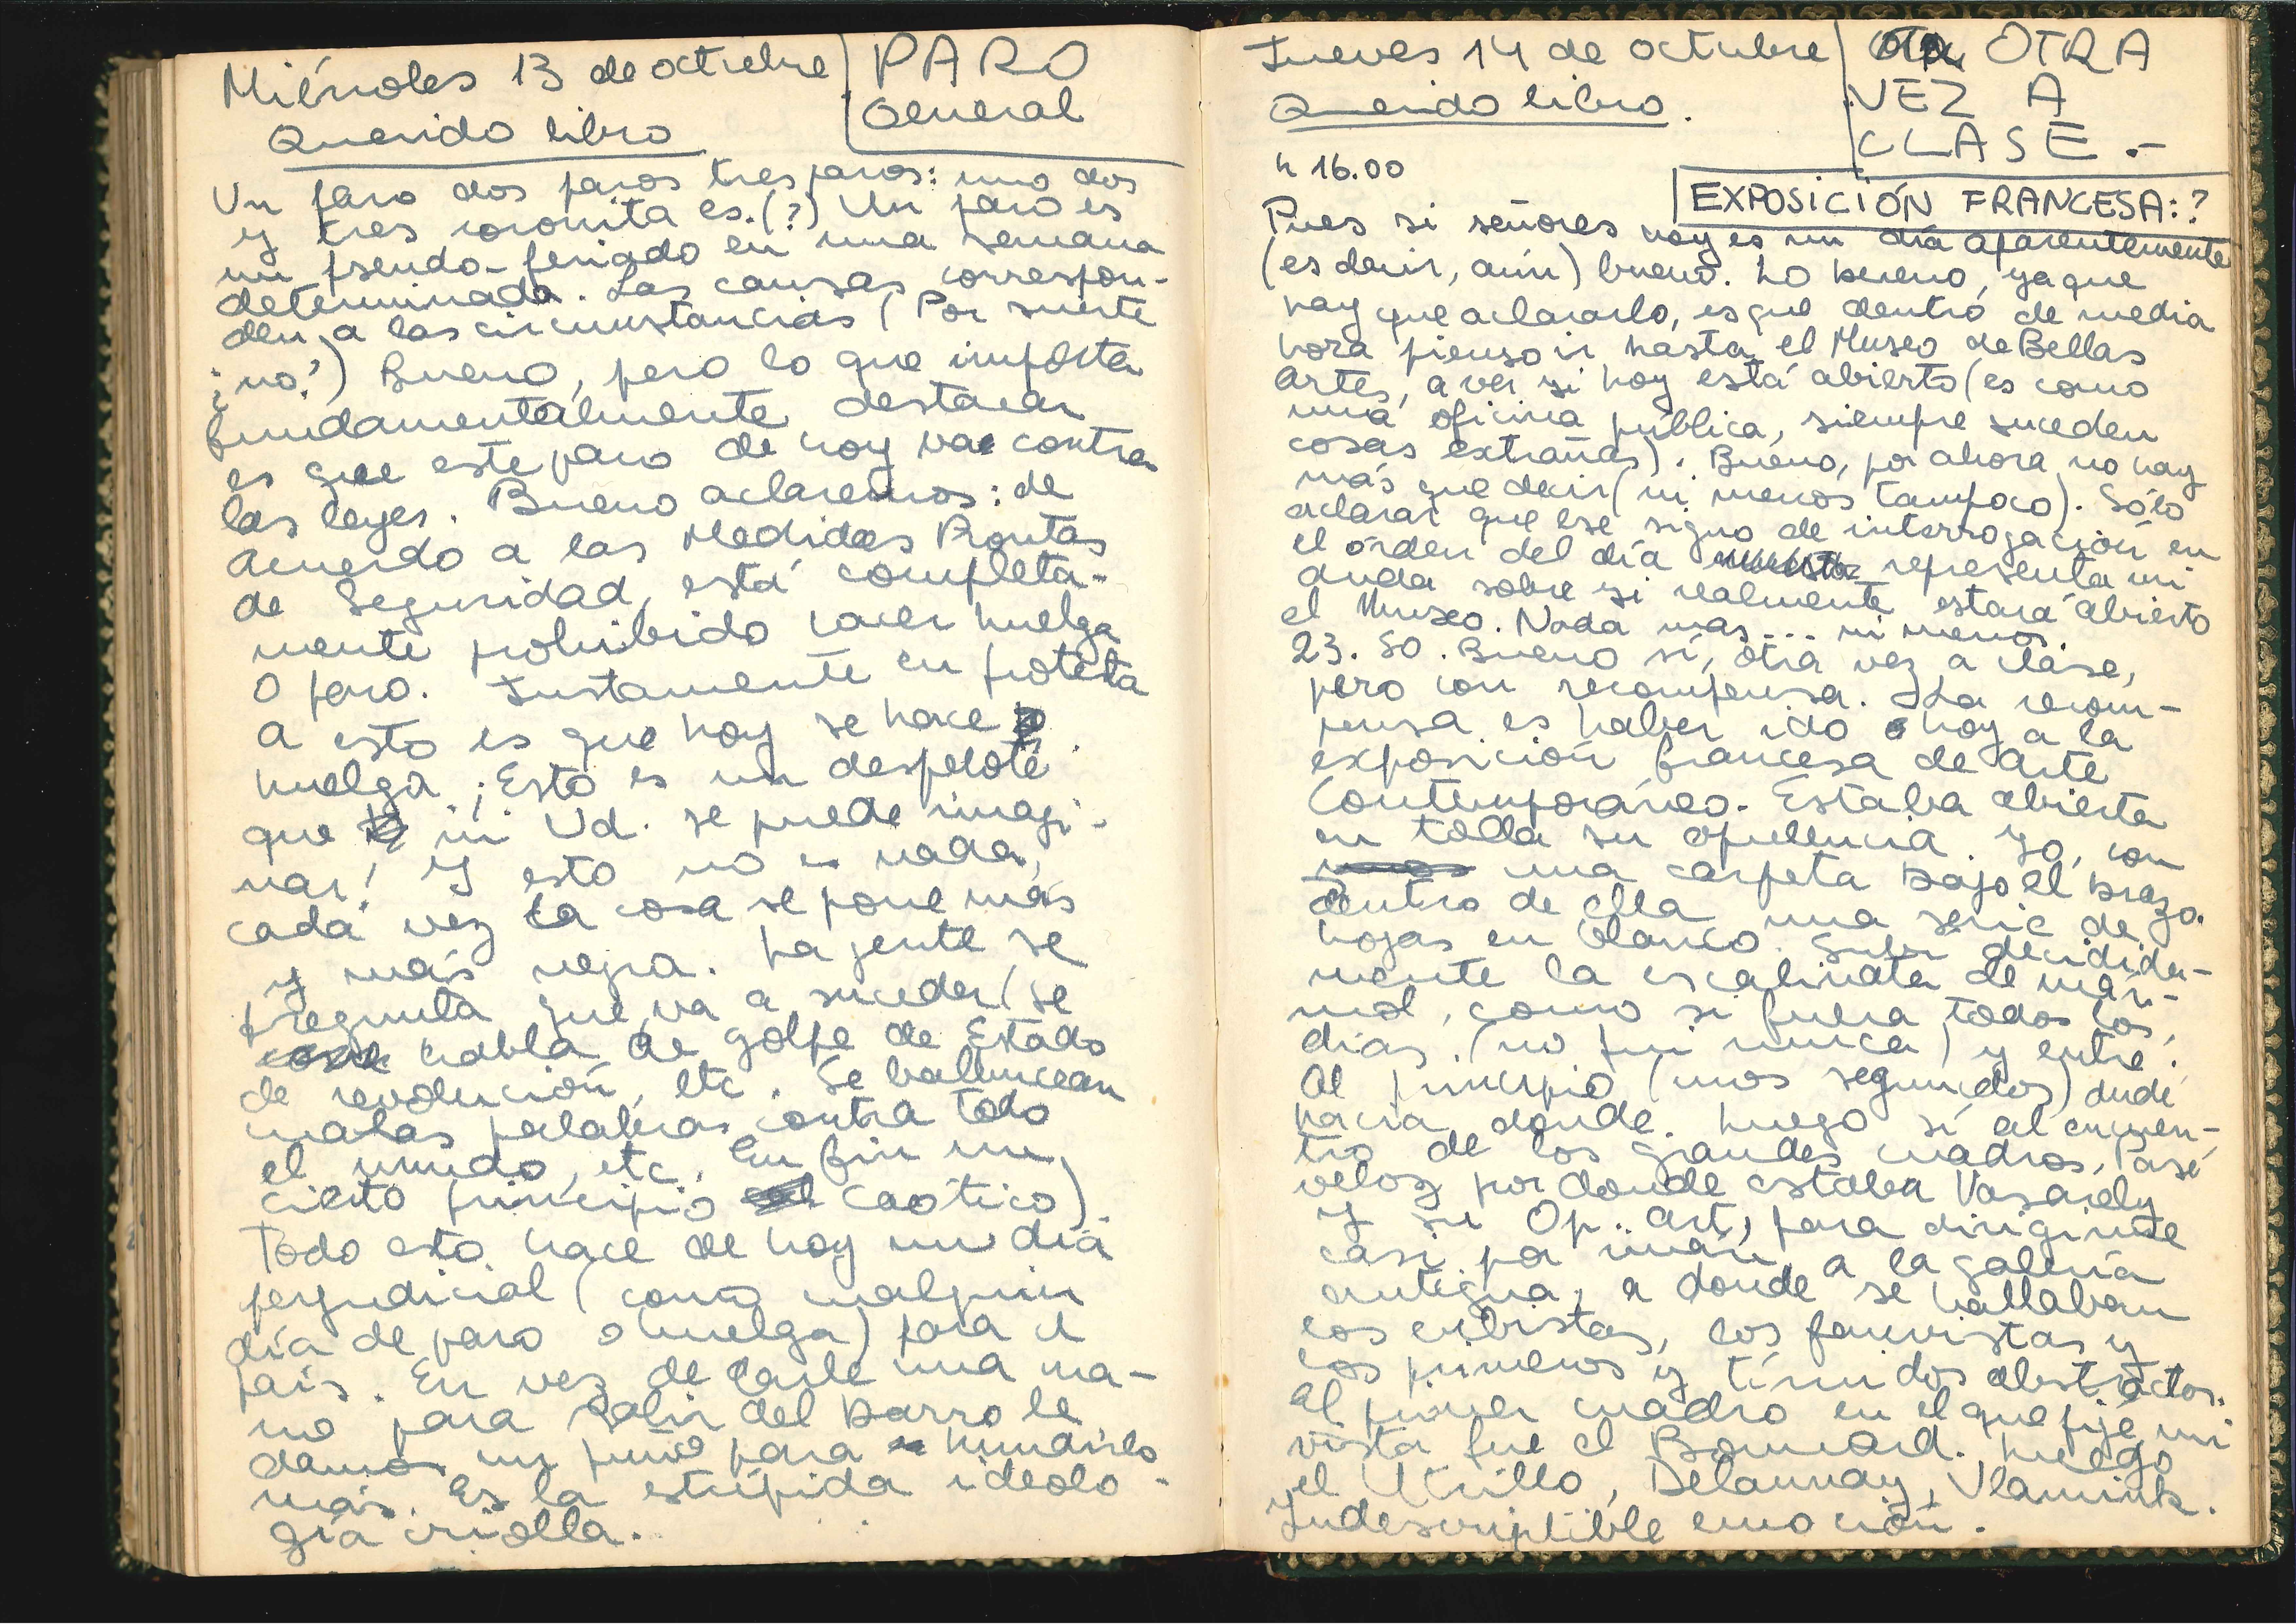 Miércoles 13 de octubre
PARO
General
Querido libro
Un paro dos paros tres paros: uno dos
y tres coronita es. (?) Un paro es
un pseudo-feriado en una semana
determinada. Las causas correspon-
den a las circunstancias (Por suerte
¿no?) Bueno, pero lo que importa
fundamentalmente destacar
es que este paro de hoy va contra
las leyes. Bueno aclaremos: de
acuerdo a las Medidas Prontas
de Seguridad, está completa-
mente prohibido hacer huelga
o paro. Justamente en protesta
a esto es que hoy se hace
huelga. ¡Esto es un despelote
que ni Ud. se puede imagi-
nar! Y esto no es nada,
cada vez la cosa se pone más
y más negra. La gente se
pregunta que va a suceder (se
habla de golpe de Estado
de revolución, etc. Se balbucean
malas palabras contra todo
el mundo, etc. En fin un
cierto principio caótico).
Todo esto hace de hoy un día
perjudicial (como cualquier
día de paro o huelga) para el
país. En vez de darle una ma-
no para salir del barro le
damos un puño para hundirlo
más. Es la estúpida ideolo-
gía criolla.
Jueves 14 de octubre
OTRA
VEZ A
CLASE.-
Querido libro.
h 16.00
EXPOSICIÓN FRANCESA:?
Pues si señores hoy es un día aparentemente
(es decir, aún) bueno. Lo bueno, ya que
hay que aclararlo, es que dentro de media
hora pienso ir hasta el Museo de Bellas
Artes, a ver si hoy está abierto (es como
una oficina pública, siempre suceden
cosas extrañas). Bueno, por ahora no hay
más que decir (ni menos tampoco). Sólo
aclarar que ese signo de interrogación en
el órden del día representa mi
duda sobre si realmente estará abierto
el Museo. Nada mas... ni menos.
23.50. Bueno sí, otra vez a clase,
pero con recompensa. La recom-
pensa es haber ido hoy a la
exposición francesa de Arte
Contemporáneo. Estaba abierta
en toda su opulencia. Yo, con
una carpeta bajo el brazo.
dentro de ella una serie de
hojas en blanco. Subí decidida-
mente la escalinata de már-
mol, como si fuera todos los
días. (no fui nunca) y entré.
Al principio (unos segundos) dudé
hacia donde. Luego sí al encuen-
tro de los grandes cuadros. Pasé
veloz por donde estaba Vasarely
y su Op. Art, para dirigirme
casi por imán a la galería
antigua, a donde se hallaban
los cubistas, los fauvistas y
los primeros y tímidos abstractos.
Al primer cuadro en el que fijé mi
vista fue el Bonnard. Luego
el Utrillo, Delaunay, Vlamink.
Indescriptible emoción.